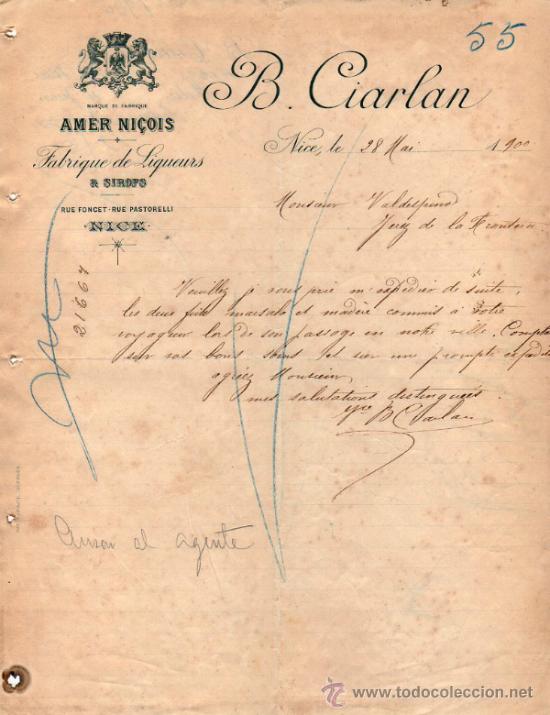 55
MARQUE DE FABRIQUE
AMER NIÇOIS
Fabrique de Liqueurs
& SIROPS
RUE FONCET - RUE PASTORELLI
NICE
B. Ciarlan
Nice, le 28 Mai 1900
Monsieur Valdespino
Jerez de la Frontera
21667
Veuillez je vous prie m'expedier de suite
les deux futs marsala et madère commis à votre
voyageur lors de son passage en notre ville. Compta
sur vos bons soins et sur une prompte expedi
agréez Monsieur
mes salutations distinguées
B Ciarlan
Avisar al agente
www.todocoleccion.net